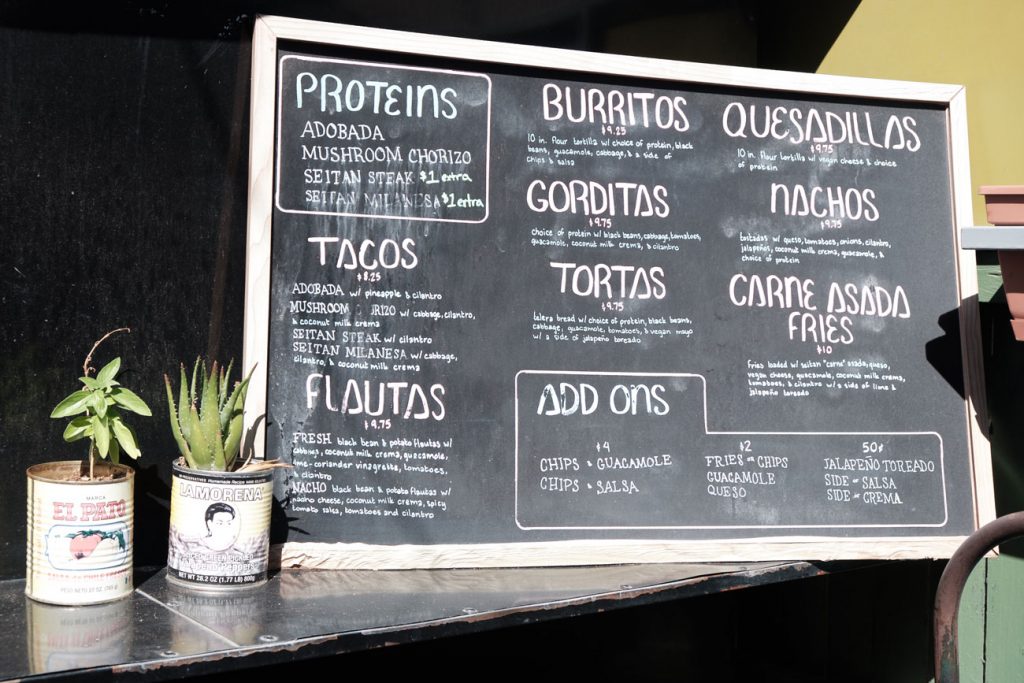 PROTEINS
ADOBADA
MUSHROOM CHORIZO
SEITAN STEAK $1 extra
SEITAN MILANESA $1 extra
TACOS
$8.25
ADOBADA w/ pineapple & cilantro
MUSHROOM w/ cabbage, cilantro,
& coconut milk crema
SEITAN STEAK w/ cilantro
SEITAN MILANESA w/ cabbage,
cilantro, & coconut milk crema
FLAUTAS
$9.75
FRESH black bean & potato flautas w/
cabbage, coconut milk crema, guacamole,
lime-coriander vinegrette, tomatoes,
& cilantro
NACHO black bean & potato flautas w/
nacho cheese, coconut milk crema, spicy
tomato salsa, tomatoes and cilantro
BURRITOS
$9.25
10 in. flour tortilla w/ choice of protein, black
beans, guacamole, cabbage, & a side of
chips & salsa
GORDITAS
$9.75
choice of protein w/ black beans, cabbage, tomatoes,
guacamole, coconut milk crema, & cilantro
TORTAS
$9.75
telera bread w/ choice of protein, black beans,
cabbage, guacamole, tomatoes, & vegan mayo
w/ a side of jalapeño toreado
QUESADILLAS
$9.75
10 in. flour tortilla w/ vegan cheese & choice
of protein
NACHOS
$9.75
tostadas w/ queso, tomatoes, onions, cilantro,
jalapeños, coconut milk crema, guacamole, &
choice of protein
CARNE ASADA
FRIES
$10
Fries loaded w/ seitan "carne" asada, queso,
vegan cheese, guacamole, coconut milk crema,
tomatoes, & cilantro w/ a side of lime &
jalapeño toreado
ADD ONS
$4
CHIPS & GUACAMOLE
CHIPS & SALSA
$2
FRIES or CHIPS
GUACAMOLE
QUESO
50¢
JALAPEÑO TOREADO
SIDE of SALSA
SIDE of CREMA
MARCA
EL PATO
PESO NETO 27 OZ.
LA MORENA
NET WT 28.2 OZ (1.77 LB) 800g